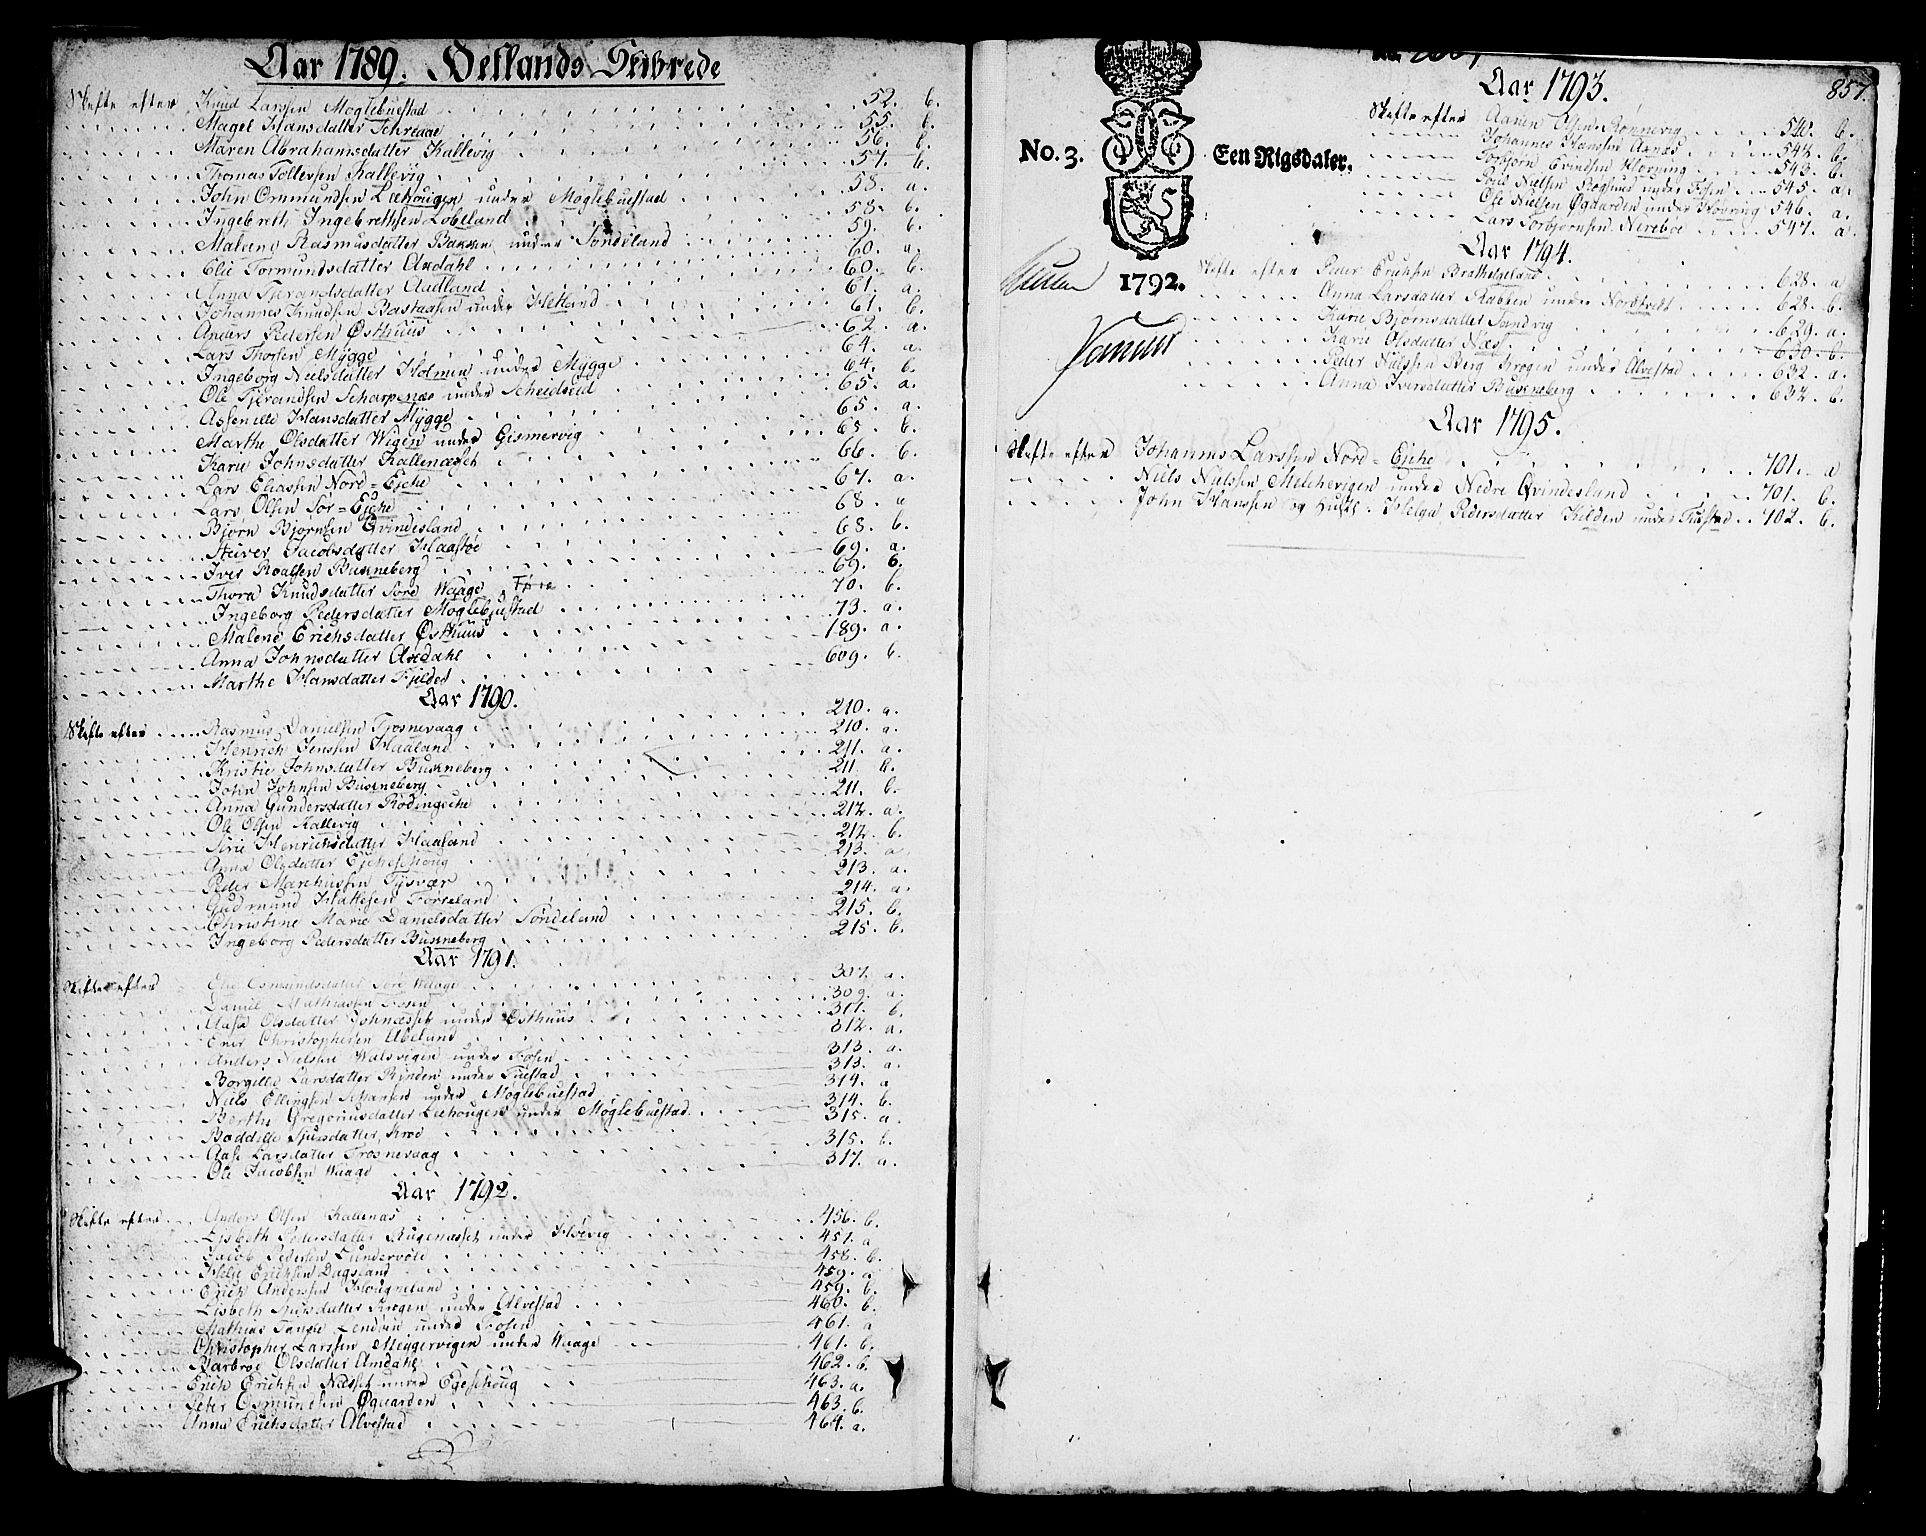 Aar 1789. Hetlands Skibrede
Skifte efter Knud Larssen Møglebuestad 52. b.
Magel Hansdatter Schregae 55. b.
Maren Abrahamsdatter Kallevig 56. b.
Thomas Tollevsen Kallevig 57. b.
John Ommundsen Leehougen under Møglebuestad 58. a.
Ingebreth Ingebrethsen Lobeland 58. b.
Malene Rasmusdatter Bakken under Søndeland 59. b.
Elie Tormundsdatter Axdahl 60. a.
Anna Tjerandsdatter Aadland 60. b.
Johannes Knudsen Rastaasen under Hetland 61. a.
Anders Pedersen Østhuus 61. b.
Lars Thorsen Mygge 62. a.
Ingeborg Nielsdatter Holmen under Mygge 64. a.
Ole Tjerandsen Scharpenæs under Scheidsvid 64. b.
Assenille Hansdatter Mygge 65. a.
Marthe Olsdatter Wigen under Gismervig 65. a.
Kari Johnsdatter Kallenæset 65. b.
Lars Eliassen Nord = Ejche 66. b.
Lars Olsen Sør = Ejche 67. a.
Bjørn Bjørnsen Qvindesland 68. a
Steiver Jacobsdatter Haastøe 68. b.
Iver Roalsen Busneberg 69. a.
Thora Knudsdatter Søre Waage 69. b.
Ingeborg Pedersdatter Møglebuestad 70. b.
Malene Erichsdatter Østhuus 73. a.
Anna Johnsdatter Axdahl 189. a.
Marthe Hansdatter Fjeldet 609. b.
Aar 1790.
Skifte efter Rasmus Danielsen Tjosnevaag 210. a.
Henrich Jensen Haaland 210. a.
Kristie Johnsdatter Busneberg 211. a.
John Johnsen Busneberg 211. b.
Anna Gundersdatter Rødingsche 211. b.
Ole Olsen Kallevig 212. a.
Siri Henrichsdatter Haaland 212. b.
Anna Olsdatter Ejcheschoug 213. a.
Peder Marchussen Tysvær 213. a.
Gudmund Hallesen Førreland 214. a.
Christine Marie Danielsdatter Søndeland 215. b.
Ingeborg Pedersdatter Busneberg 215. b.
Aar 1791.
Skifte efter Elie Osmundsdatter Søre Waage 307. a.
Daniel Mathiassen Fosen 309. a.
Aasa Olsdatter Johnæsset under Østhuus 311. b.
Ener Christophersen Abeland 312. a.
Anders Nielsen Walsvigen under Fosen 313. a.
Borgille Larsdatter Rinden under Fuestad 313. a.
Niels Ellingsen Schansen under Møglebuestad 314. a
Berthe Gregoriusdatter Leehougen under Møglebuestad 314. b.
Boddille Sjursdatter Kroe 315. a.
Aase Larsdatter Trosnevaag 315. b.
Ole Jacobsen Waage 317. a.
Aar 1792.
Skifte efter Anders Olsen Kallenæs 456. b.
Lisbeth Pedersdatter Rugenæsset under Høvig 457. a
Jacob Pedersen Lundervold 458. b.
Helje Erichsen Dagsland 459. a
Erich Andersen Hougneland 459. b.
Lisbeth Sjursdatter Krogen under Alvestad 460. b.
Mathias Tanche Lendvin under Fosen 461. a
Christopher Larssen Meggervigen under Waage 461. b.
Barbroe Olsdatter Amdahl 462. b.
Erich Erichsen Næsset under Egeschoug 463. a.
Peter Osmundsen Øgaarden 463. b.
Anna Erichsdatter Alvestad 464. a.
857.
No. 3. Een Rigsdaler.
1792.
Aar 1793.
Skifte efter Aaren Olsen Rønnevig 540. b.
Johannes Hanssen Aanæs 542. b.
Torbjørn Evindsen Kløvning 543. b.
Poul Nielsen Slegsund under Fosen 545. a.
Ole Nielsen Øgaarden under Høvring 546. a.
Lars Torbjørnsen Nerebøe 547. a.
Aar 1794.
Skifte efter Peder Erichsen Brathelgeland 628. a
Anna Larsdatter Rabben under Nordtvedt 628. b.
Karie Bjørnsdatter Sandvig 629. a.
Karie Olsdatter Næs 630. b.
Peder Nielssen Berg Krogen under Alvestad 632. a.
Anna Iversdatter Busneberg 632. b.
Aar 1795.
Skifte efter Johannes Larssen Nord = Ejche 701. a
Niels Nielssen Melchevigen under Nedre Qvindesland 701. b.
John Hanssen og Hustr. Helga Pedersdatter Kilden under Fuestad 702. b.